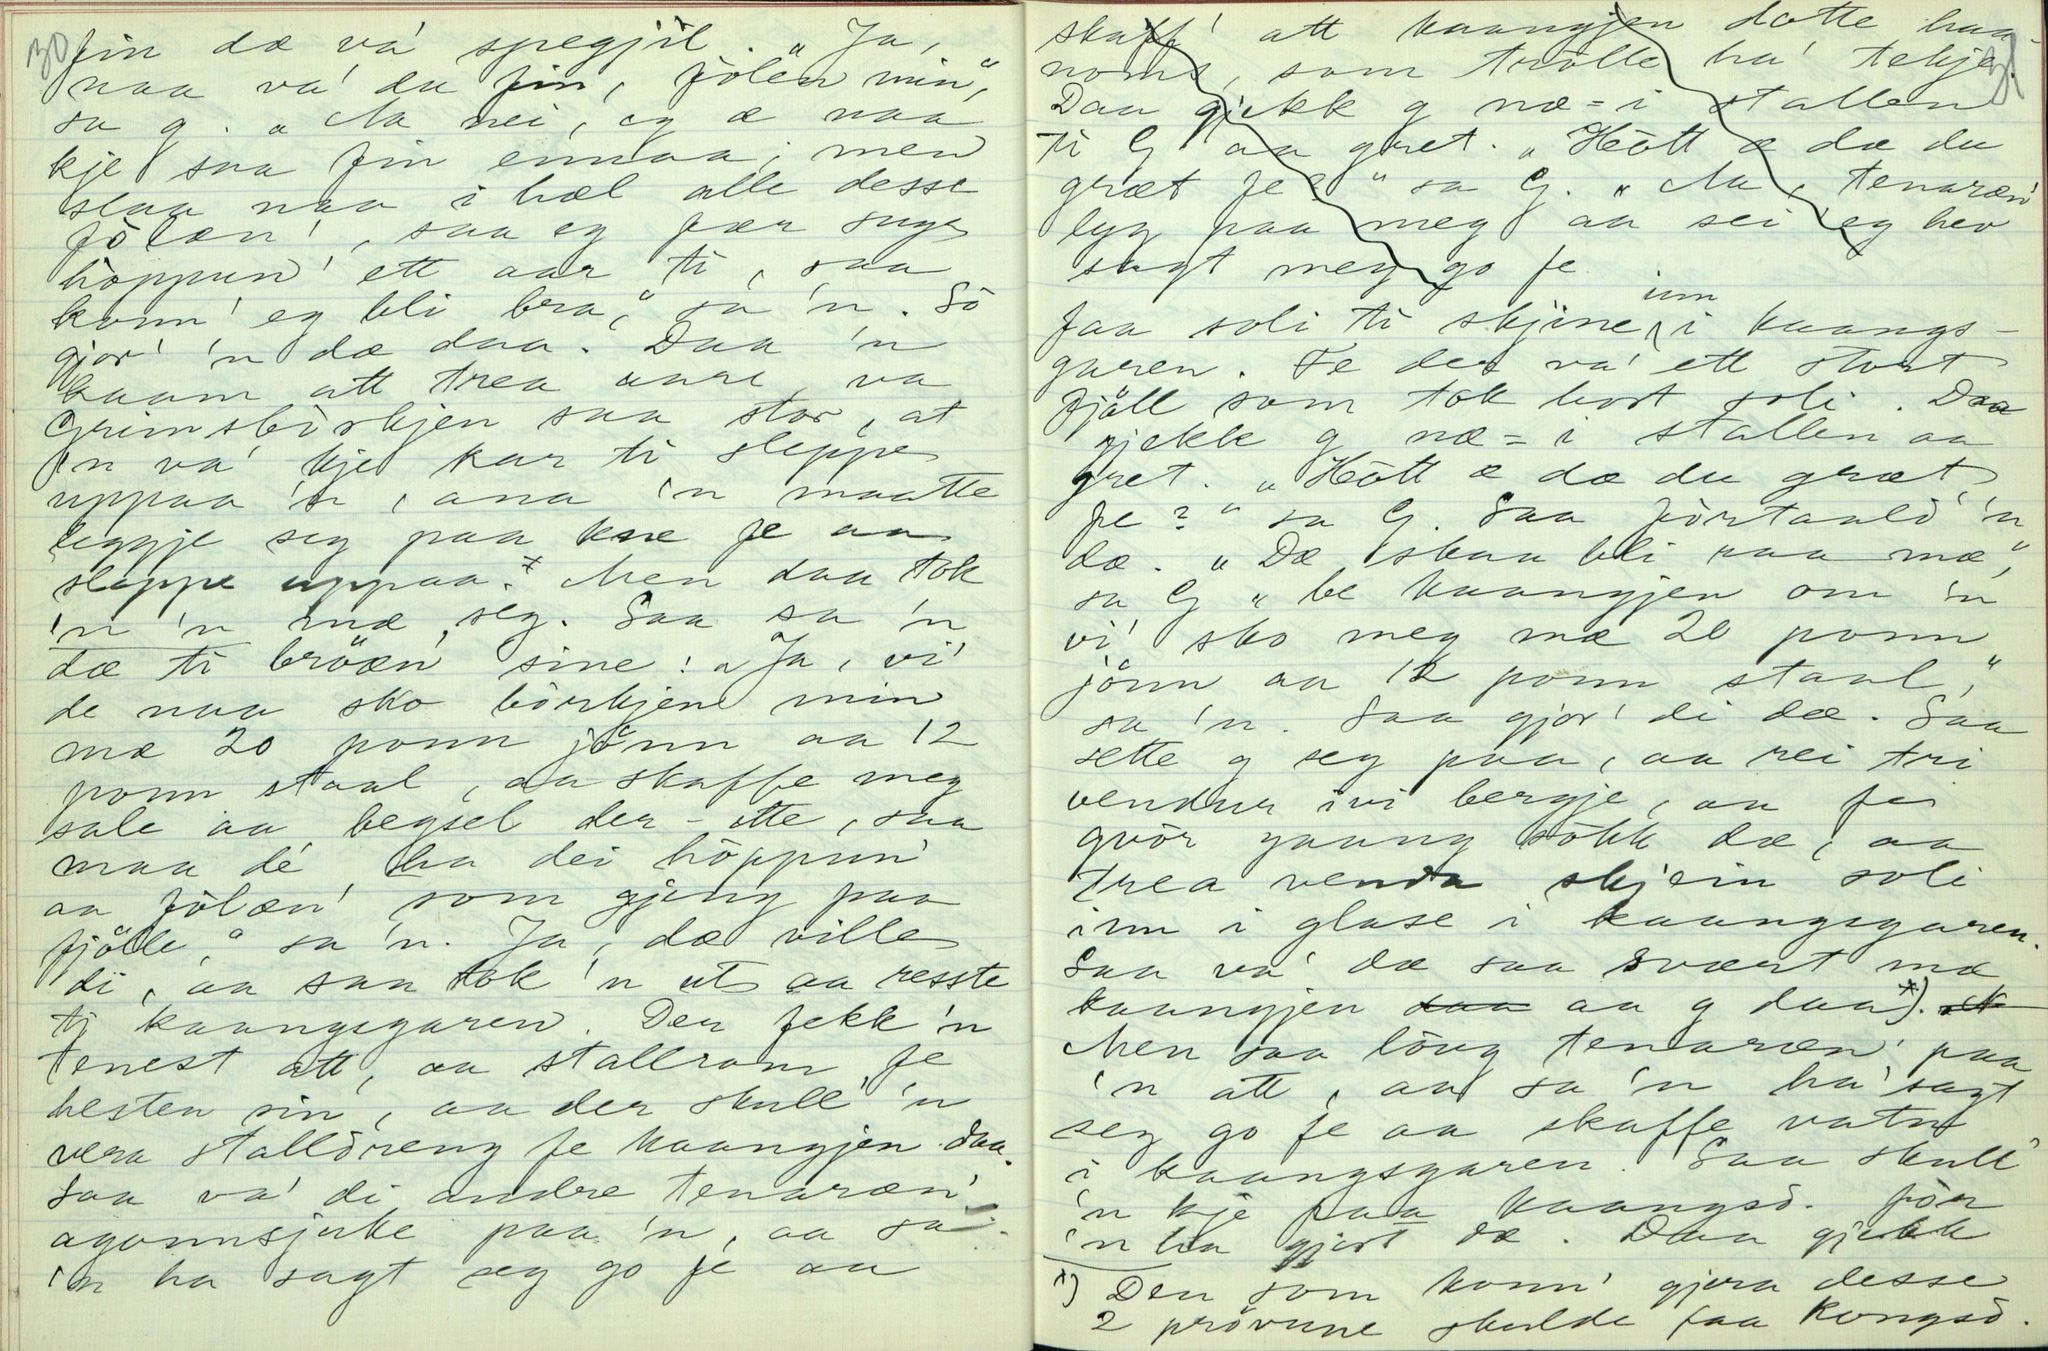 30
fin dæ va' spegjil. „Ja,
naa va' du fin, fôlen min",
sa g. „Aa nei, eg æ naa
kje saa fin ennaa, men
slaa naa i hæl alle desse
fôlæn', saa eg fær suge
höppun' ett aar ti, saa
konn' eg bli bra," sa 'n. Så
gjor' 'n dæ daa. Daa 'n
kaam att trea aare, va
Grimsbörkjen saa stor, at
'n va' kje kar ti sleppe
uppaa 'n, ana 'n maatte
leggje seg paa kne fe aa
sleppe uppaa.* Men daa tok
'n 'n mæ seg. Saa sa 'n
dæ ti bröæn' sine: „Ja, vi'
de naa sko börkjen min
mæ 20 ponn jönn aa 12
ponn staal, aa skaffe meg
sale aa begsel der-ette, saa
maa de' ha dei höppun'
aa fôlæn' som gjeng paa
fjölle," sa 'n. Ja, dæ ville
di, aa saa tok 'n ut aa resste
ti kaangsgaren. Der fekk 'n
tenest att, aa stallrom fe
hesten sin', aa der skull' 'n
vera stalldreng fe kaangjen daa.
Saa va' di andre tenaræn'
agonnsjuke paa 'n, aa sa
'n ha sagt seg go fe aa
31
skaff' att kaangjen dotte haa-
noms, som trolle ha' tekje.
Daa gjekk g næ-i stallen
ti G aa gret. „Hôtt æ dæ du
græt fe?" sa G. „Aa, tenaræn'
lyg paa meg aa sei eg hev
sagt meg go fe
faa soli ti skjine inn i kaangs-
garen. Fe der va' ett stort
fjöll som tok bort soli. Daa
gjekk g næ-i stallen aa
gret. „Hôtt æ dæ du græt
fe?" sa G. Saa förtaald 'n
dæ. „Dæ skaa bli raa mæ",
sa G „be kaangjen om 'n
vi' sko meg mæ 20 ponn
jönn aa 12 ponn staal,"
sa 'n. Saa gjor' di dæ. Saa
sette g seg paa, aa rei tri
vendur ivi bergje, aa fe
qvör gaang sökk dæ, aa
trea venda skjein soli
inn i glase i kaangsgaren.
Saa va' dæ saa svært mæ
kaangjen saa aa g daa*). sk
Men saa löug tenaræn' paa
'n att, aa sa 'n ha' sagt
seg go fe aa skaffe vatn
i kaangsgaren. Saa skull'
'n kje faa kaangsd. förr
'n ha gjort dæ. Daa gjekk
*) Den som konn' gjera desse
2 prövune skulde faa Kongsd.